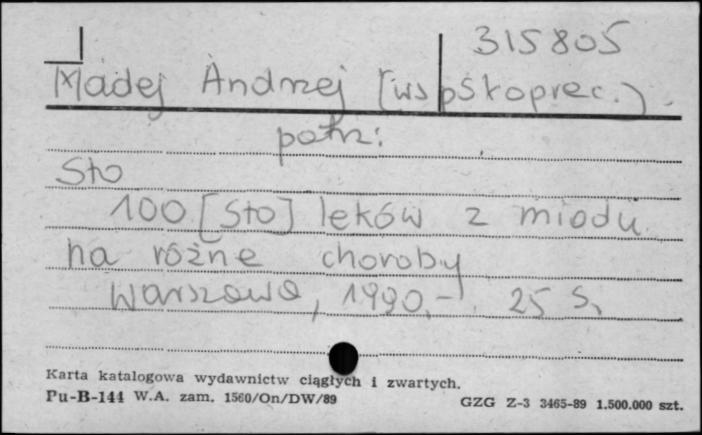 315805
Madej Andrzej (współoprac.).
patrz:
Sto
100 [Sto] leków z miodu
na różne choroby
Warszawa, 1990.- 25 s.
Karta katalogowa wydawnictw ciągłych i zwartych.
Pu-B-144 W.A. zam. 1560/On/DW/89
GZG Z-3 3465-89 1.500.000 szt.